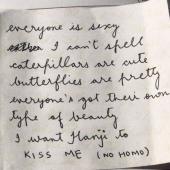 everyone is sexy
I can't spell
caterpillars are cute
butterflies are pretty
everyone's got their own
type of beauty
I want Hanji to
KISS ME (NO HOMO)